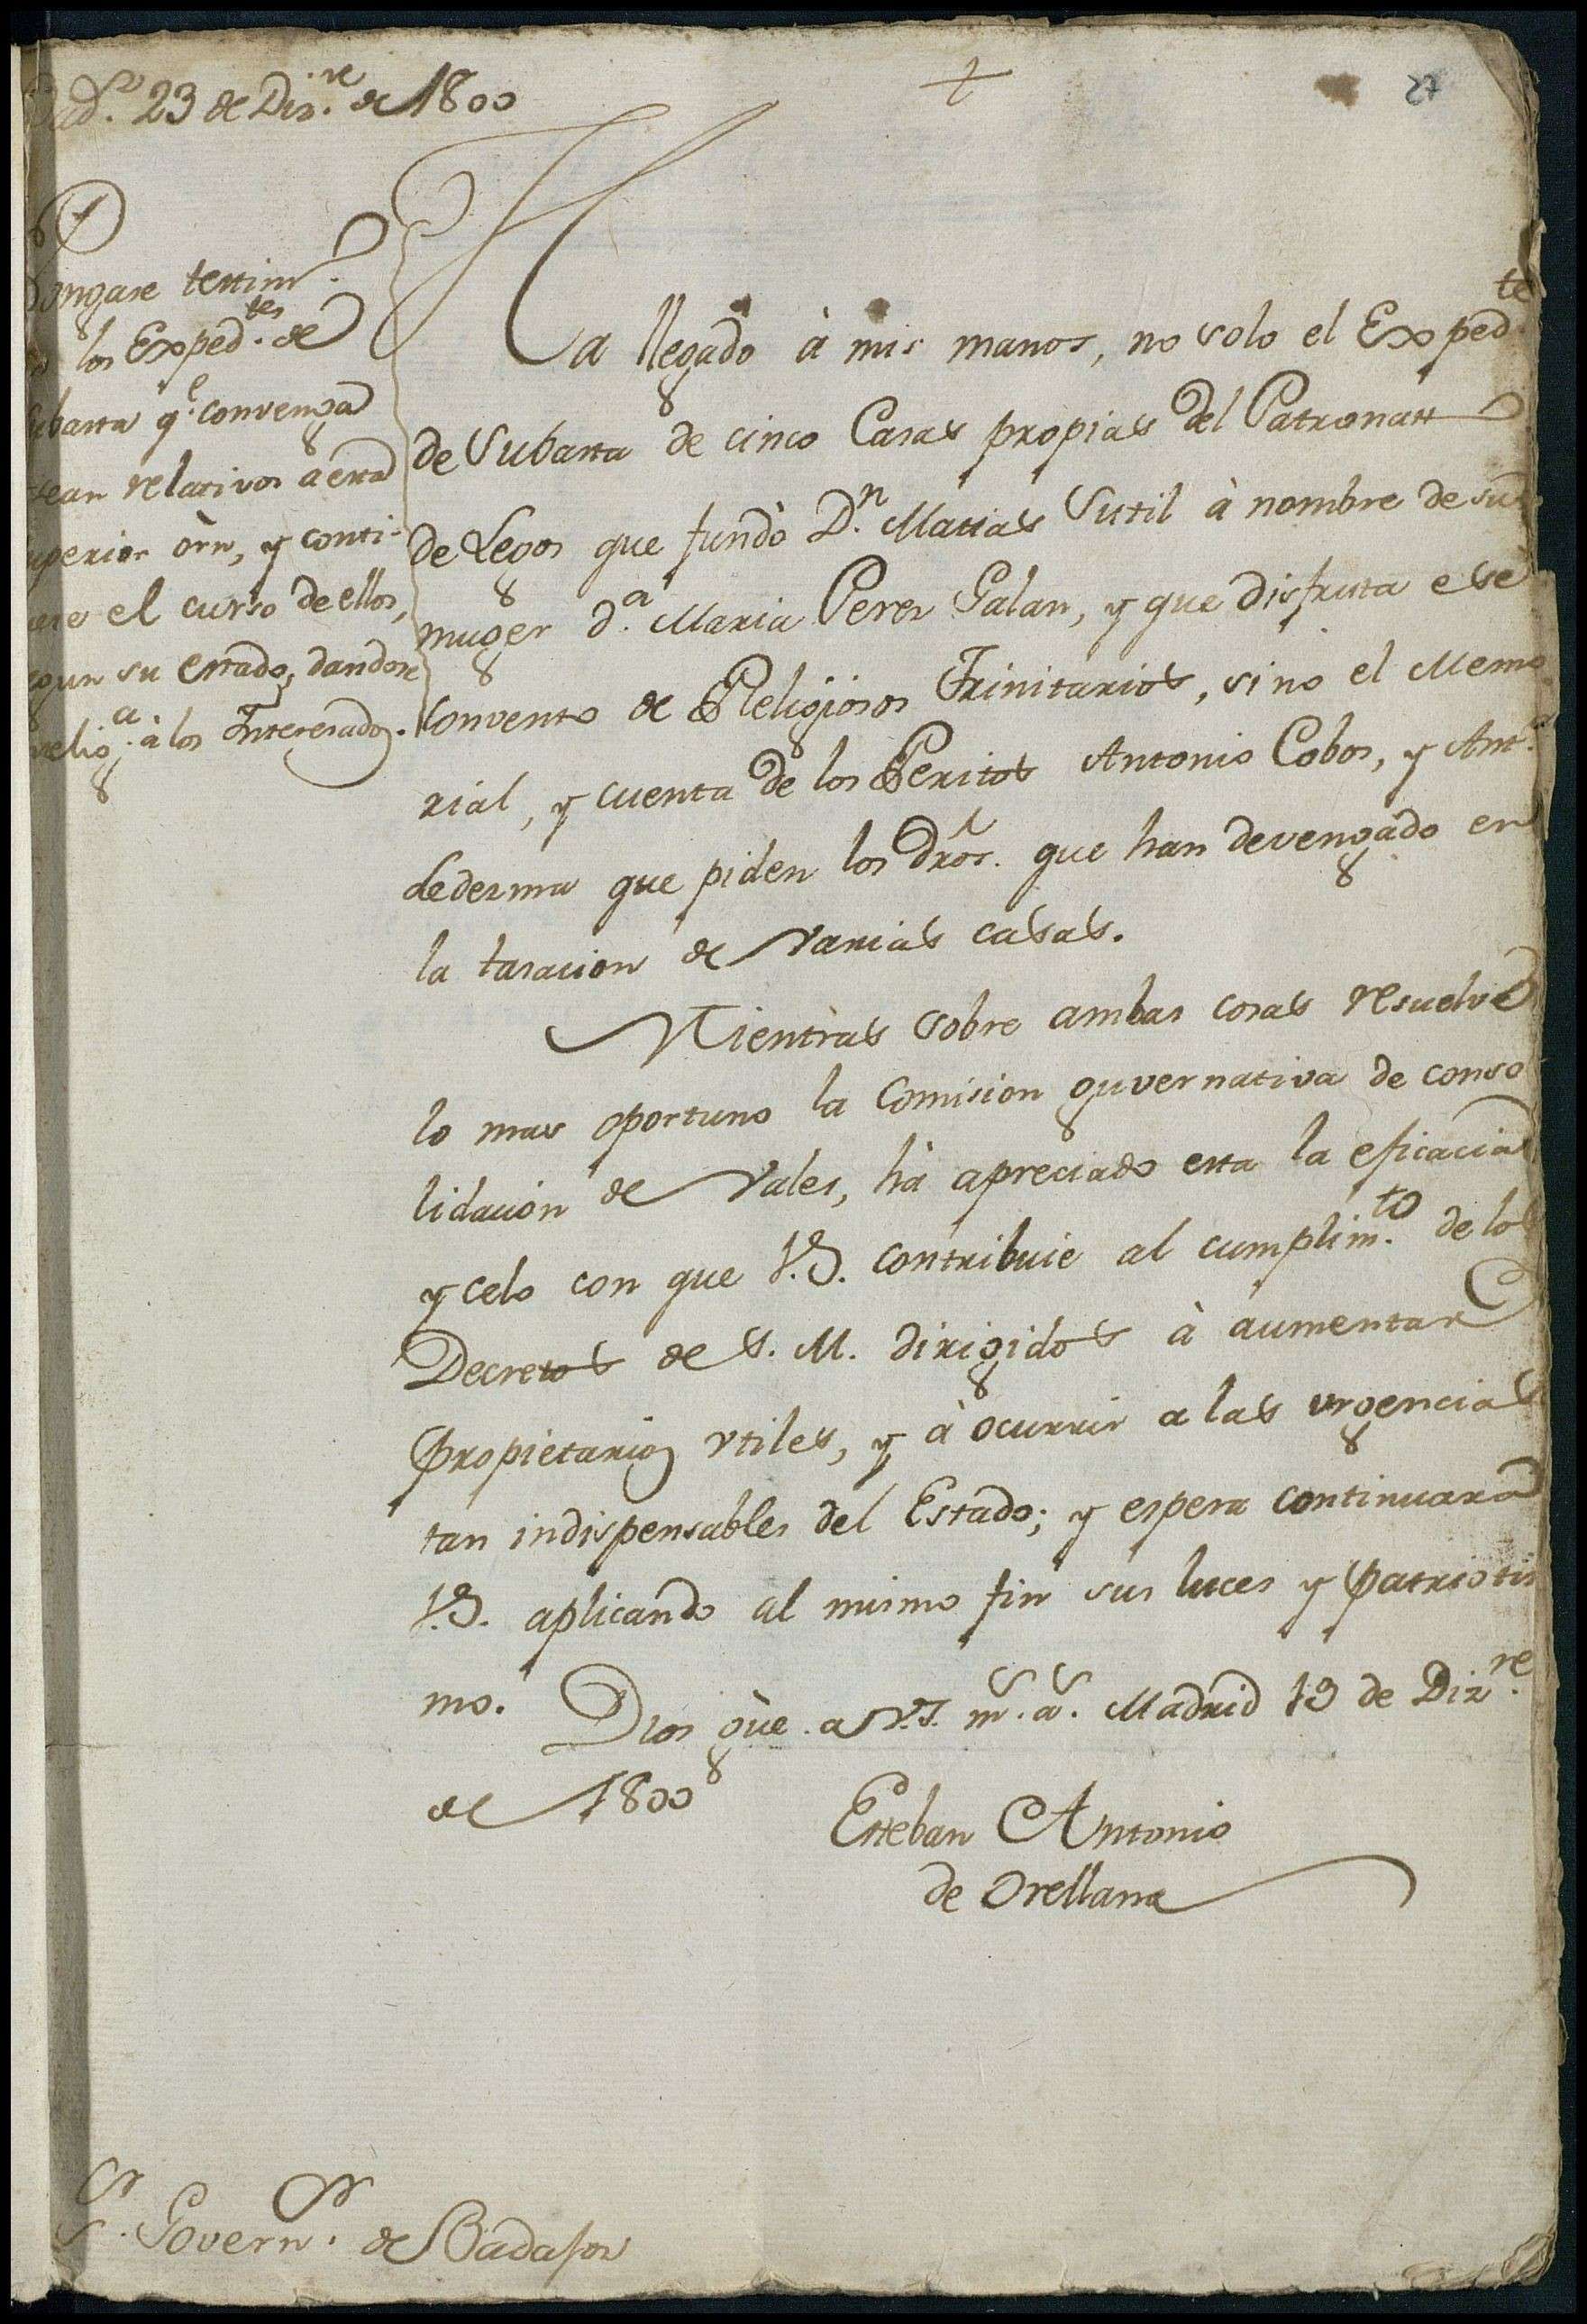 Bad.º 23 de Diz.re de 1800
27
Pongase testim.º
los Exped.tes de
Subasta q.e convenga
sean relativos a esta
Superior òrn, y conti-
el curso de ellos,
segun su estado, dandose
à los Interesados.
Ha llegado à mis manos, no solo el Exped.te
de Subasta de cinco Casas propias del Patronatto
de Legos que fundò D.n Mattias Sutil à nombre de su
muger d.a Maria Perez Galan, y que disfruta ese
Convento de Religiosos Trinitarios, sino el Memo
rial, y cuenta de los Peritos Antonio Cobos, y Ant.º
Ledezma que piden los dros. que han devengado en
la tasacion de varias casas.
Mientras sobre ambas cosas resuelve
lo mas oportuno la Comision guvernativa de conso
lidacion de Vales, hà apreciado esta la eficacia
y celo con que V.S. contribuie al cumplim.to de los
Decretos de S. M. dirigidos à aumentar
propietarios utiles, y à ocurrir a las urgencias
tan indispensables del Estado; y espera continuarà
V.S. aplicando al mismo fin sus luces y patriotis
mo. Dios gùe a V.S. m.s a.s Madrid 19 de Diz.re
de 1800
Esteban Antonio
de Orellana
S.or Govern.or de Badajoz